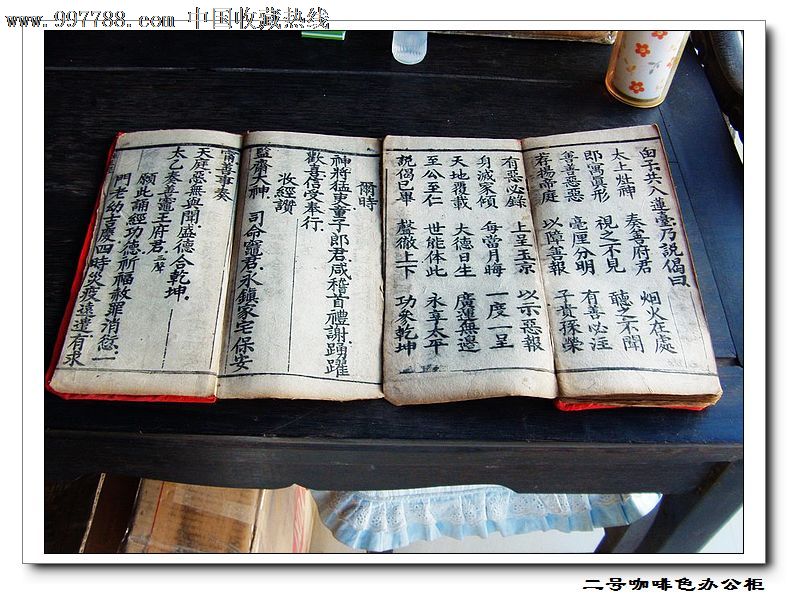 www.997788.com 中国收藏热线
子共入蓮臺乃說偈曰
太上灶神 奏善府君 烟火在處
郎寓眞形 視之不見 聽之不聞
善善惡惡 毫厘分明 有善必注
揚帝庭 以障善報 子貴孫榮
有惡必錄 上呈玉京 以示惡報
身滅家傾 每當月晦 一度一呈
天地覆載 大德日生 廣蓮無邊
至公至仁 世能体此 永享太平
說偈巳畢 聲徹上下 功參乾坤
爾時
神將猛吏童子郎君.咸稽首禮謝.踴躍
歡喜信受奉行.
收經讚
監齋大神 司命竈君.永鎮家宅保安
甯善事奏
天庭惡無與聞.盛德合乾坤.
太乙奏善竈王府君
願此誦經功德祈福赦罪消愆.一
門老幼吉慶.四時災疫遠遣.有求
二号咖啡色办公柜